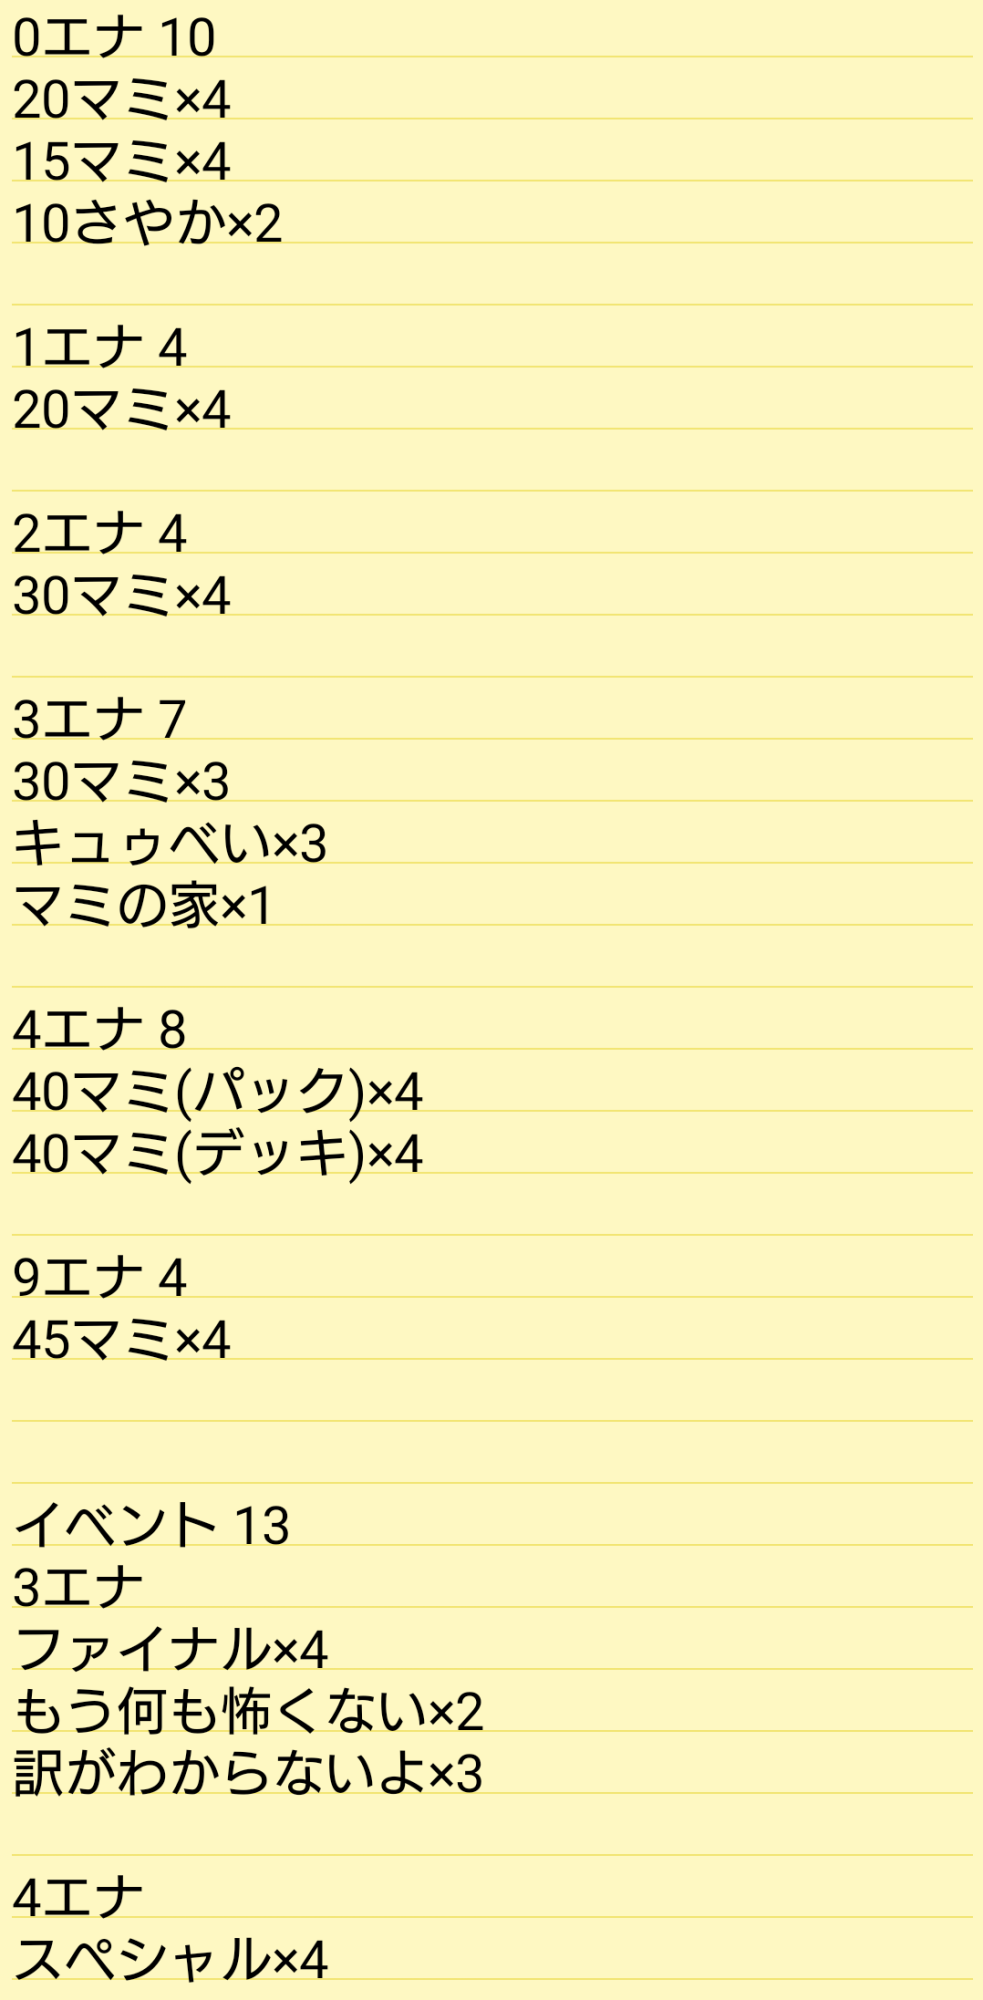 0エナ 10
20マミ×4
15マミ×4
10さやか×2
1エナ 4
20マミ×4
2エナ 4
30マミ×4
3エナ 7
30マミ×3
キュゥべい×3
マミの家×1
4エナ 8
40マミ(パック)×4
40マミ(デッキ)×4
9エナ 4
45マミ×4
イベント 13
3エナ
ファイナル×4
もう何も怖くない×2
訳がわからないよ×3
4エナ
スペシャル×4